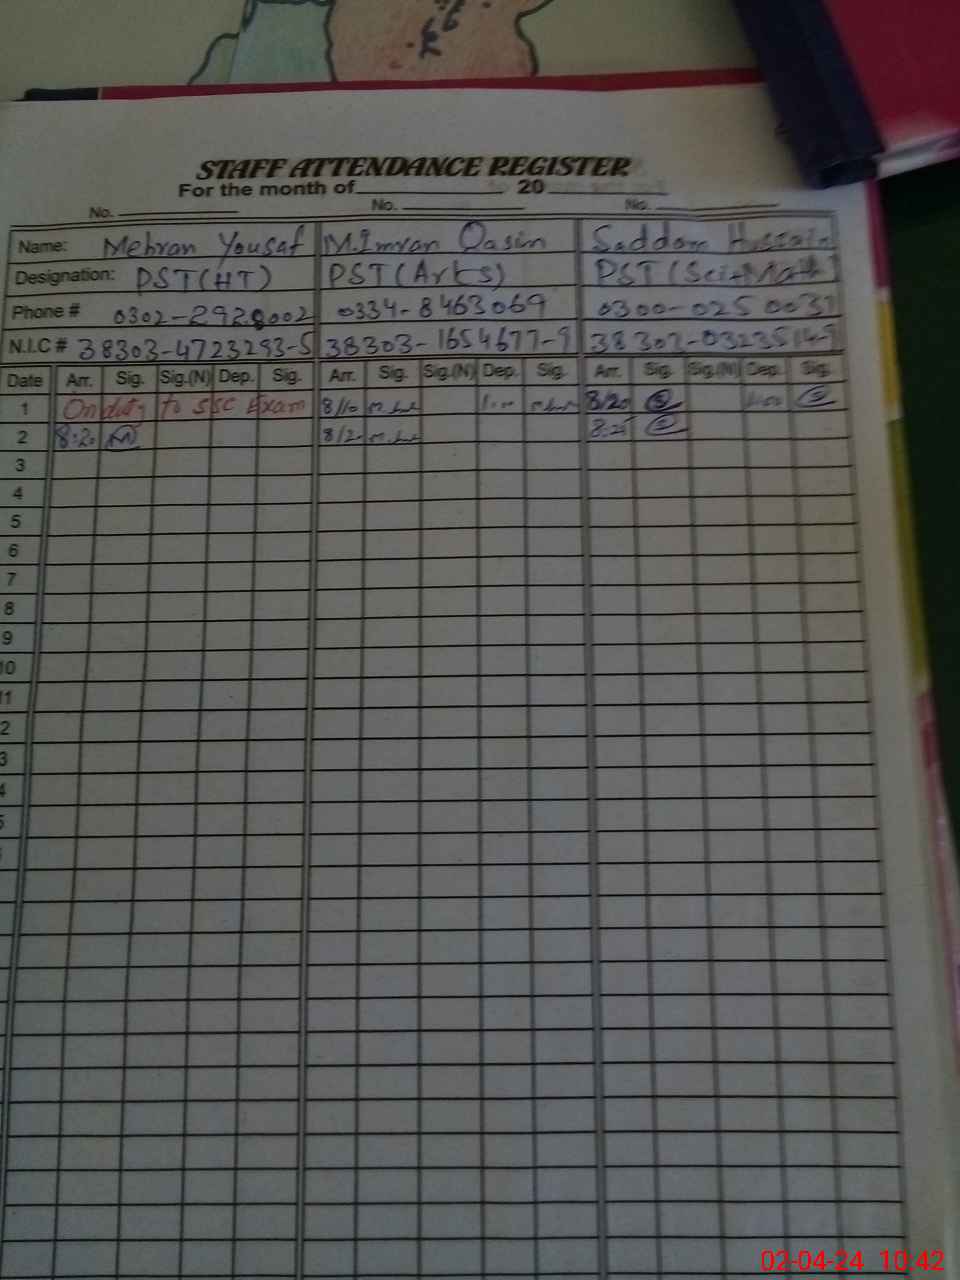 STAFF ATTENDANCE REGISTER
For the month of 20
No. No. No.
Name: Mehran Yousaf M.Imran Qasim Saddam Hussain
Designation: PST(HT) PST(Arts) PST(Sci-Math)
Phone # 0302-2928002 0334-8463069 0300-0250037
N.I.C # 38303-4723293-5 38303-1654677-9 38302-0323514-9
Date Arr. Sig. Sig.(N) Dep. Sig. Arr. Sig. Sig.(N) Dep. Sig. Arr. Sig. Sig.(N) Dep. Sig.
1 On duty to SSC Exam 8/10 1:00 8/20 1:00
2 8:20 8/20 8:25
3
4
5
6
7
8
9
10
11
2
3
4
5
02-04-24 10:42